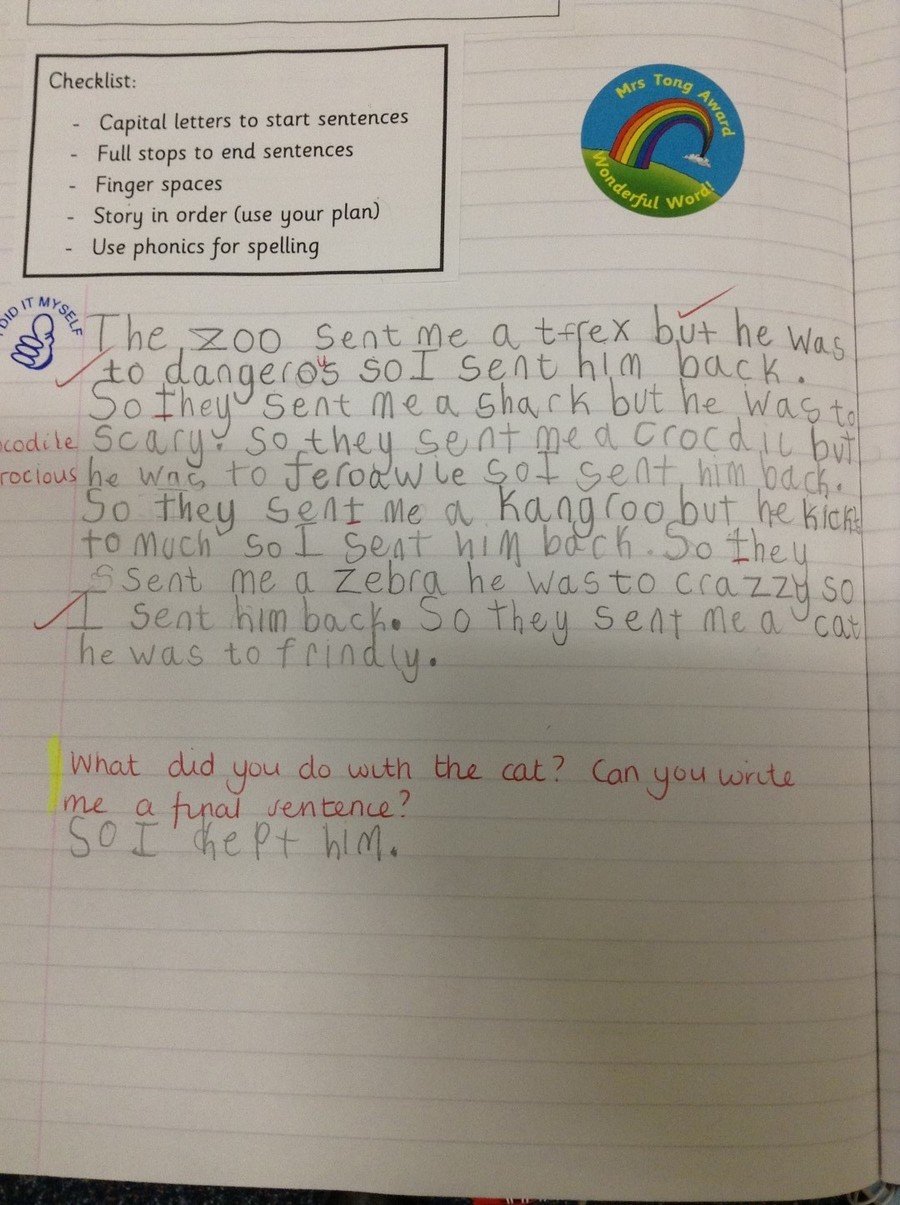 Checklist:
- Capital letters to start sentences
- Full stops to end sentences
- Finger spaces
- Story in order (use your plan)
- Use phonics for spelling
Mrs Tong Award
Wonderful Word!
DID IT MYSELF
The zoo sent me a t-rex but he was
to dangerous so I sent him back.
So they sent me a shark but he was to
codile scary. So they sent me a crocdil but
rocious he was to feroawle so I sent him back.
So they sent me a kangroo but he kicks
to much so I sent him back. So they
sent me a zebra he was to crazzy so
I sent him back. So they sent me a cat
he was to frindly.
What did you do with the cat? Can you write
me a final sentence?
So I kept him.